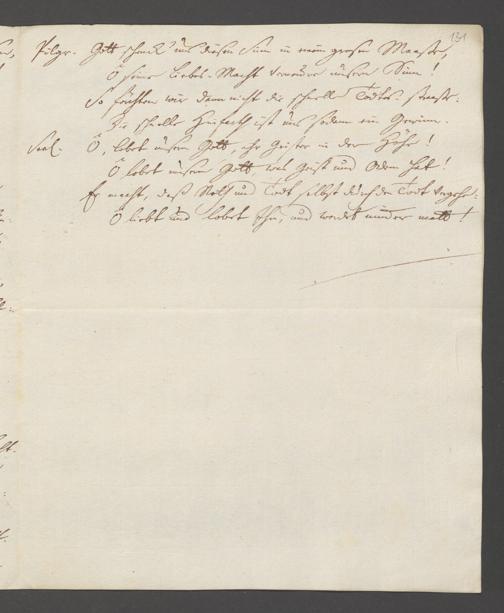 131
Pilgr. Gott schenck uns diesen Sinn in reim grosen Maaße,
O seine Liebes-Macht verneure unsern Sinn!
So förchten wir dann nicht die schnelle Todtes-strasse:
Die schnelle Hinfarth ist uns sodann ein Gewinn.
Seel. O, lobet unsern Gott, ihr Geister in der Höhe!
O lobet unsern Gott was Geist und Odem hat!
Er macht, daß Noth und Todt selbst durch den Todt vergehe:
O liebt und lobet Ihn, und werdet nimder matt!